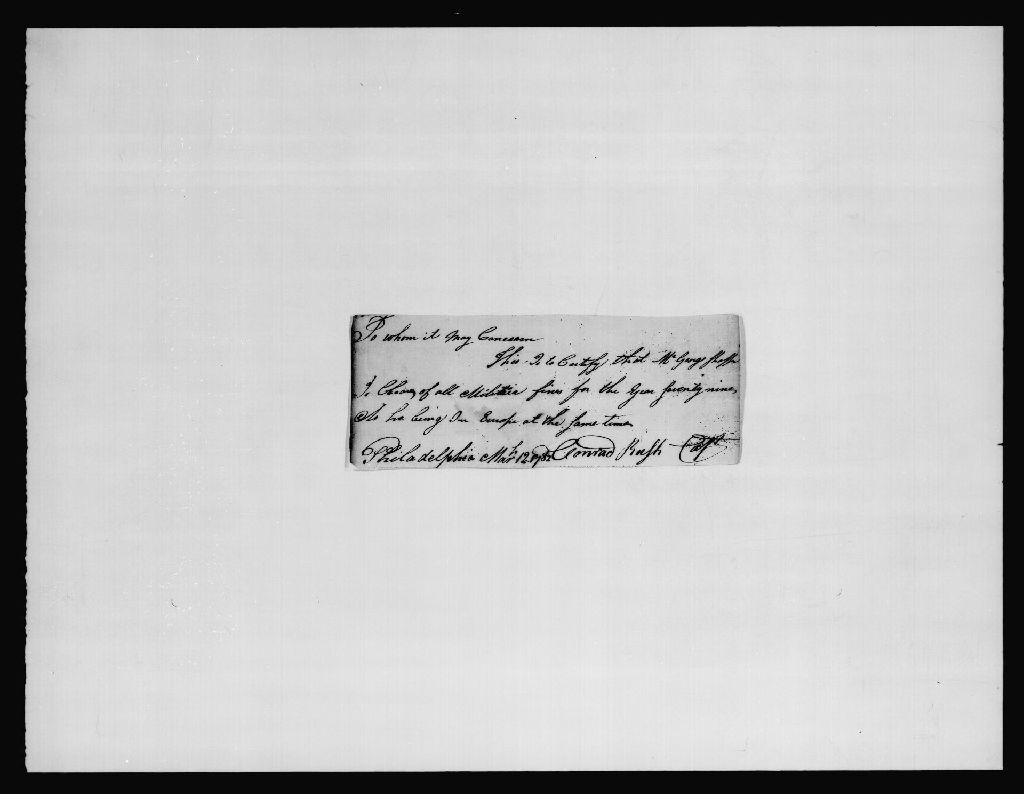 To whom it May Concearn
This Is to Certify that Mr George
Is Clear of all Militia fines for the Year seventy nine,
As he being In Europe at the same time
Philadelphia Mar 12 Conrad Rush Capt